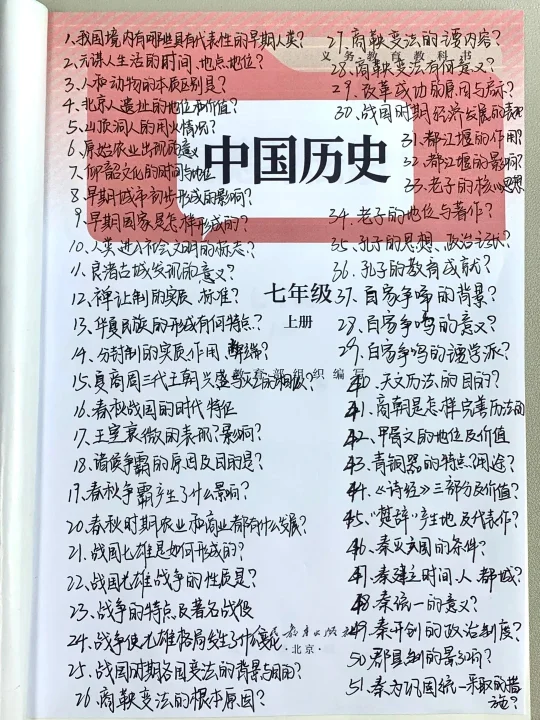 1、我国境内有哪些具有代表性的早期人类?
2、元谋人生活的时间、地点、地位?
3、人和动物的本质区别是?
4、北京人遗址的地位和价值?
5、山顶洞人的用火情况?
6、原始农业出现的意义
7、仰韶文化的时间与地位
8、早期城市初步形成的影响?
9、早期国家是怎样形成的?
10、人类进入社会文明的标志?
11、良渚古城发现的意义?
12、禅让制的实质、标准?
13、华夏民族的形成有何特点?
14、分封制的实质、作用、弊端?
15、夏商周三代王朝兴盛与灭亡的
16、春秋战国的时代特征
17、王室衰微的表现?影响?
18、诸侯争霸的原因及目的是?
19、春秋争霸产生了什么影响?
20、春秋时期农业和商业都有什么发展?
21、战国七雄是如何形成的?
22、战国七雄战争的性质是?
23、战争的特点及著名战役
24、战争使七雄格局发生了什么变化
25、战国时期各国变法的背景与目的?
26、商鞅变法的根本原因?
27、商鞅变法的主要内容?
义务教育教科书
28、商鞅变法有何意义?
29、改革成功的原因与启示?
30、战国时期经济发展的表现
31、都江堰的作用?
32、都江堰的影响?
33、老子的核心思想
中国历史
34、老子的地位与著作?
35、孔子的思想、政治主张?
36、孔子的教育成就?
七年级
上册
37、百家争鸣的背景?
38、百家争鸣的意义?
39、百家争鸣的诸学派?
教育部组织编写
40、天文历法的目的?
41、商朝是怎样完善历法的
42、甲骨文的地位及价值
43、青铜器的特点?用途?
44、《诗经》三部分及价值?
45、"楚辞"产生地及代表作?
46、秦灭六国的条件?
47、秦建立时间、人、都城?
48、秦统一的意义?
49、秦开创的政治制度?
50、郡县制的影响?
51、秦为巩固统一采取的措施?
人民教育出版社
·北京·